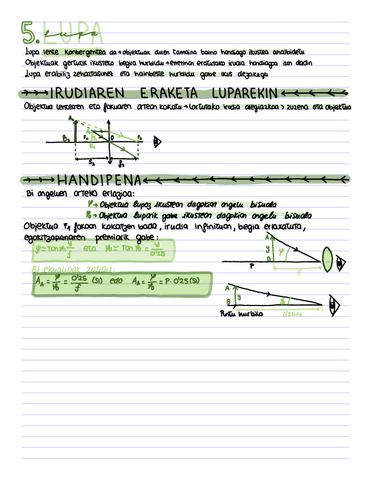 5. LUPA
Lupa
Lupa lente konbergentea da → objektuak duen tamaina baino handiago ikustea ahalbidetu
Objektuak gertutik ikusteko begira hurbildu → erretinan eratutako irudia handiagoa izan dadin
Lupa erabiliz zehaztasunez eta hainbeste hurbildu gabe ikus dezakegu
IRUDIAREN ERAKETA LUPAREKIN
Objektua lentearen eta fokuaren artean kokatu → lortutako irudia alegiazkoa, zuzena eta objektua
HANDIPENA
Bi angeluen arteko erlazioa:
φ → Objektua lupaz ikustean dagokion angelu bisuala
φ₀ → Objektua luparik gabe ikustean dagokion angelu bisuala
Objektua F₁ fokoan kokatzen bada, irudia infinituan, begia erlaxatuta,
egokitzapenaren premiarik gabe:
φ ≈ tan φ = y/f eta φ₀ ≈ tan φ₀ = y/0'25
Bi ekuazioak zatituz:
A = φ/φ₀ = 0'25/f (SI) edo A = φ/φ₀ = P · 0'25 (SI)
A
y
B
F
f
A
y
B
Puntu hurbila 0'25m